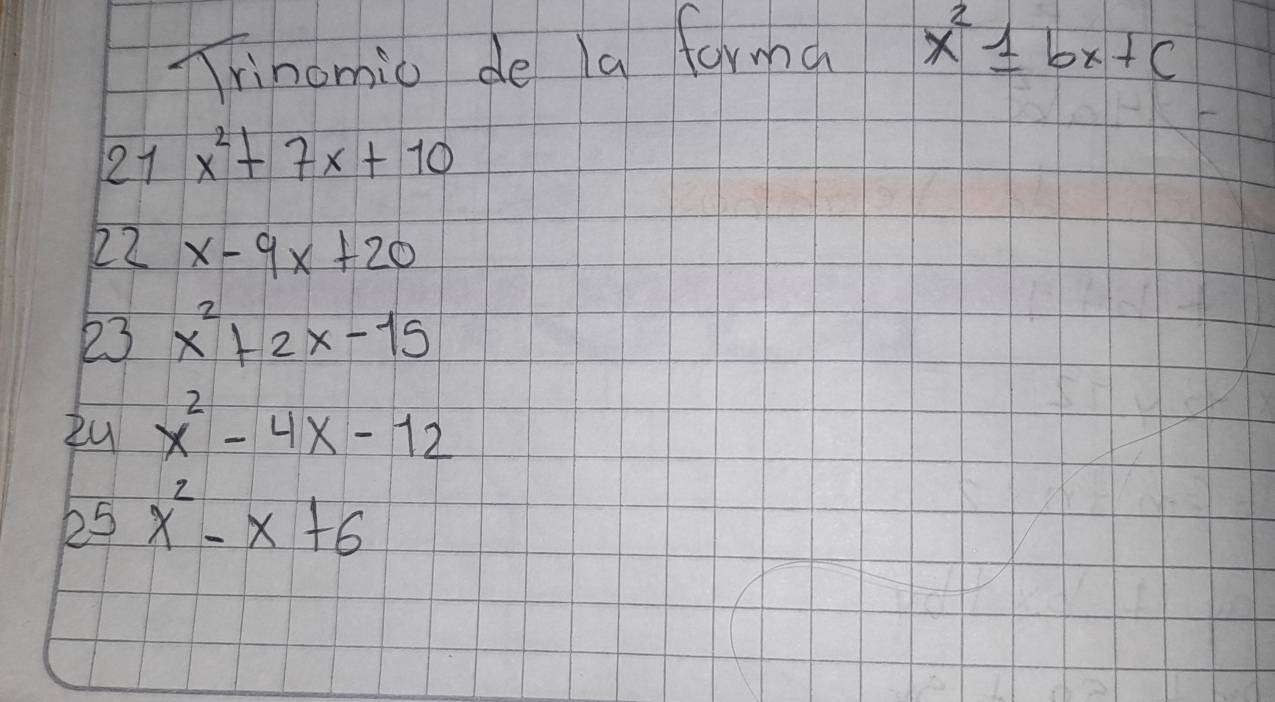 Trinomio de la forma x² ± bx + c
21 x² + 7x + 10
22 x - 9x + 20
23 x² + 2x - 15
24 x² - 4x - 12
25 x² - x + 6